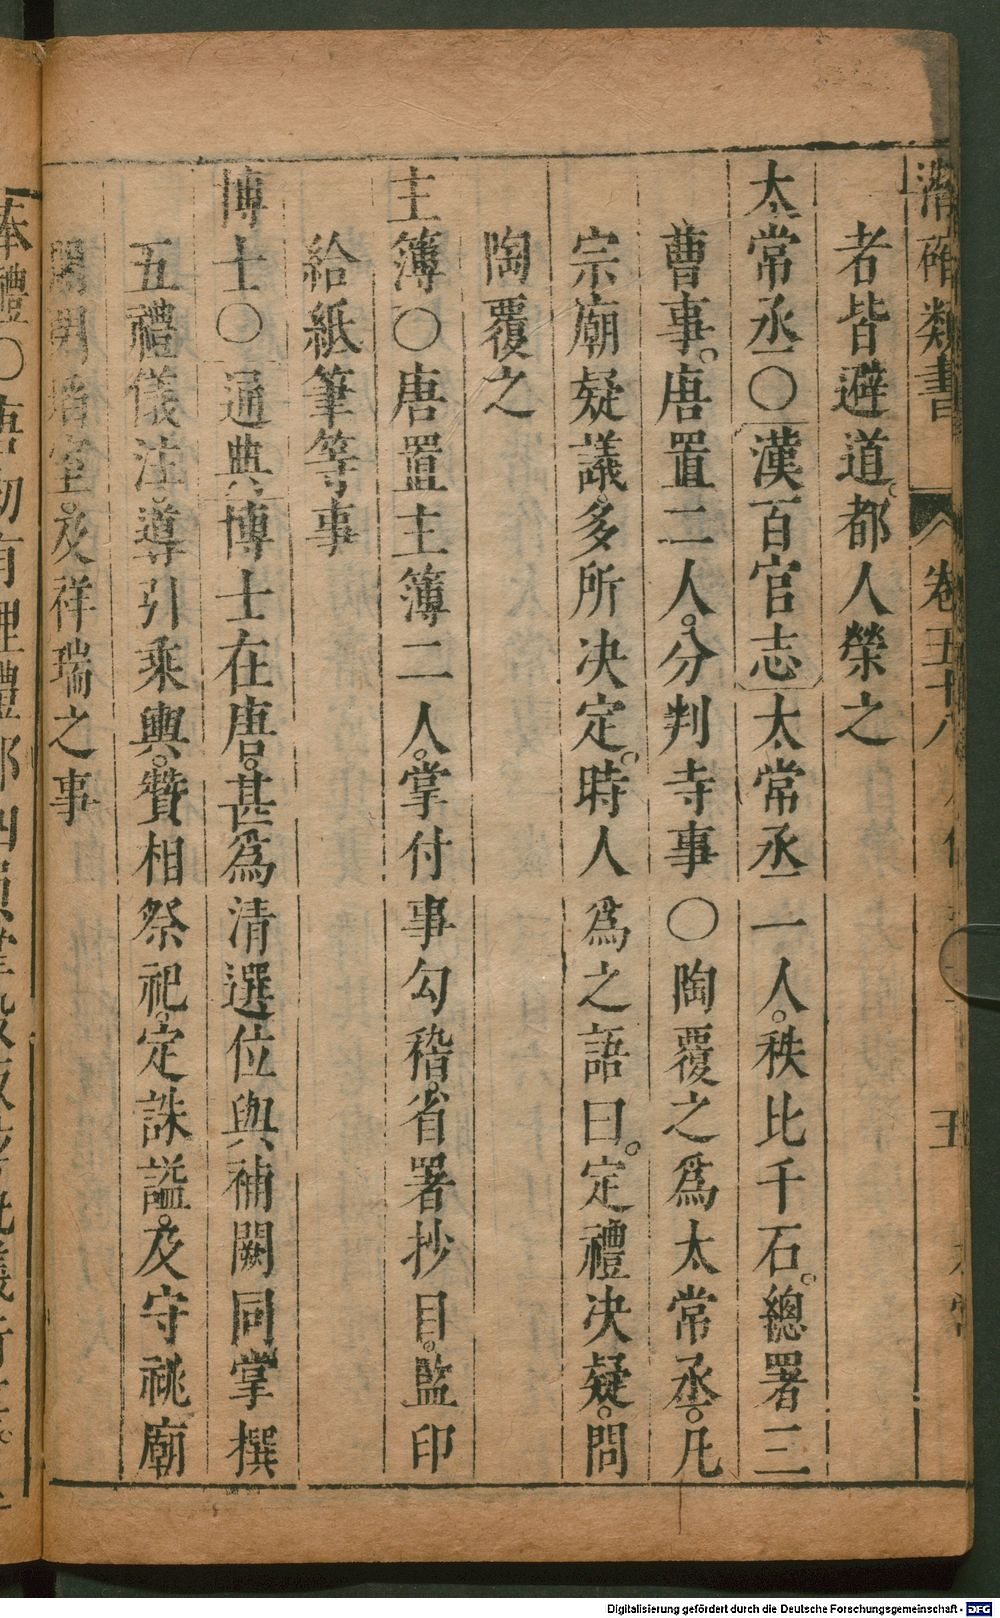 潛確類書 卷五十八 五
者皆避道都人榮之
太常丞〇漢百官志太常丞一人秩比千石總署三
曹事唐置二人分判寺事〇陶覆之爲太常丞凡
宗廟疑議多所决定時人爲之語曰定禮决疑問
陶覆之
主簿〇唐置主簿二人掌付事勾稽省署抄目監印
給紙筆等事
博士〇通典博士在唐甚爲清選位與補闕同掌撰
五禮儀注導引乘輿贊相祭祀定誄謚及守祧廟
開閉埳室及祥瑞之事
奉禮〇唐初有理禮郎四員掌
Digitalisierung gefördert durch die Deutsche Forschungsgemeinschaft - DFG